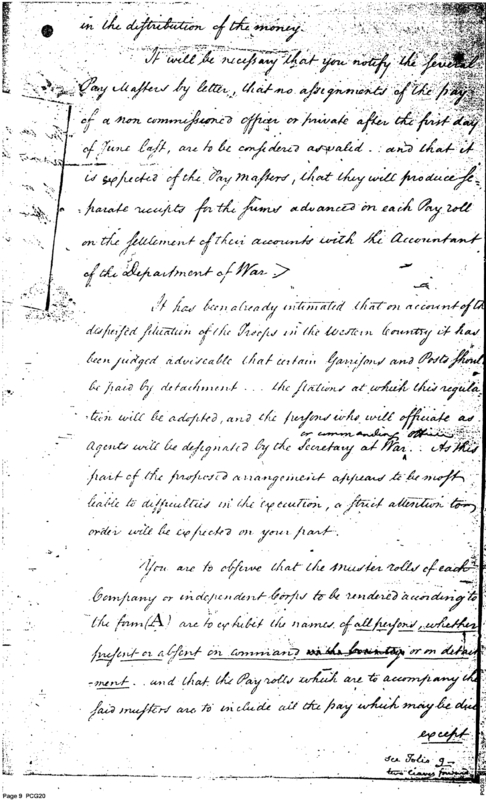 in the distribution of the money.
It will be necessary that you notify the several
Pay Masters by letter, that no assignments of the pay
of a non commissioned officer or private after the first day
of June last, are to be considered as valid .. and that it
is expected of the Pay Masters, that they will produce se-
-parate receipts for the sums advanced on each Pay roll
on the settlement of their accounts with the Accountant
of the Department of War.
It has been already intimated that on account of the
dispersed situation of the Troops in the Western Country it has
been judged adviseable that certain Garrisons and Posts should
be paid by detachment ... the stations at which this regula-
-tion will be adopted, and the persons who will officiate as
or commanding officer
Agents will be designated by the Secretary at War .. As this
part of the proposed arrangement appears to be most
liable to difficulties in the execution, a strict attention to
order will be expected on your part.
You are to observe that the muster rolls of each
Company or independent Corps to be rendered according to
the form (A) are to exhibit the names of all persons, whether
present or absent on command in the Country or on detach-
-ment .. and that the Pay rolls which are to accompany the
said musters are to include all the pay which may be due
except
see Folio 9
two leaves forward
Page 9 PCG20